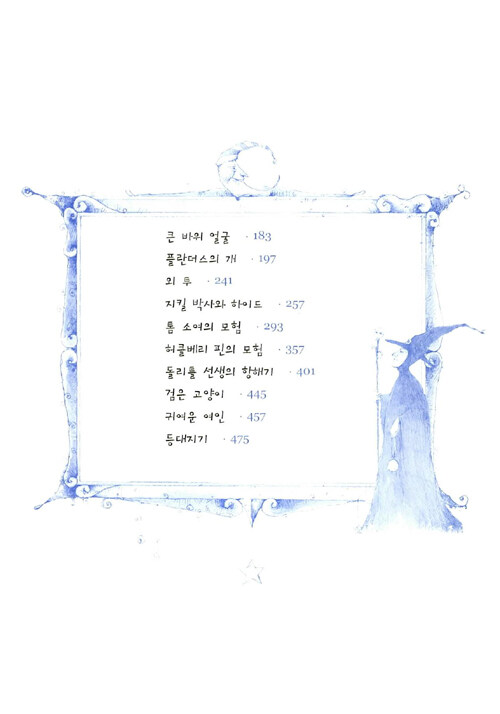 큰 바위 얼굴 · 183
플란더스의 개 · 197
외 투 · 241
지킬 박사와 하이드 · 257
톰 소여의 모험 · 293
허클베리 핀의 모험 · 357
돌리틀 선생의 항해기 · 401
검은 고양이 · 445
귀여운 여인 · 457
등대지기 · 475